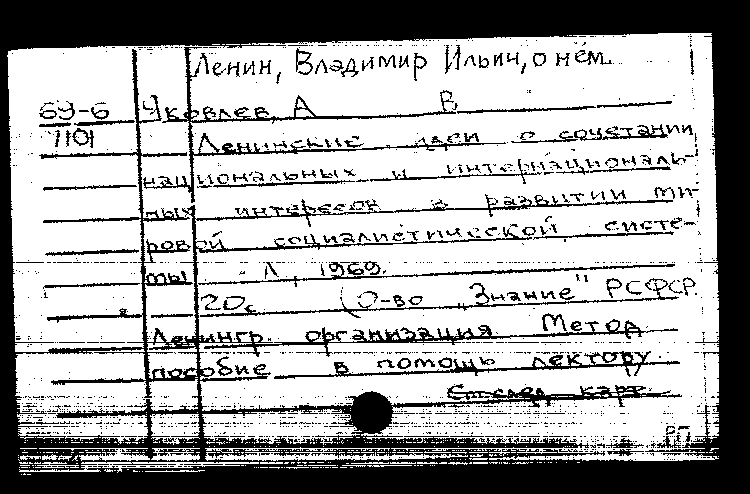 Ленин, Владимир Ильич, о нём.
69-6 Яковлев, А В
7101 Ленинские идеи о сочетании
национальных и интернациональ-
ных интересов в развитии ми-
ровой социалистической систе-
мы. - Л, 1969.
20с (О-во „Знание" РСФСР.
Ленингр. организация. Метод
пособие в помощь лектору.
См. след. карт.
РП